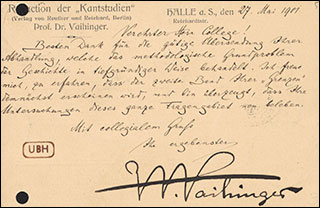 Redaction der „Kantstudien"
(Verlag von Reuther und Reichard, Berlin)
Prof. Dr. Vaihinger.
HALLE a. S., den 27. Mai 1901
Reichardtstr.
Verehrter Herr College!
Besten Dank für die gütige Übersendung Ihrer
Abhandlung, welche das methodologische Grundproblem
der Geschichte in tiefgründiger Weise behandelt. Ich freue
mich, zu erfahren, dass der zweite Band Ihrer „Grenzen"
demnächst erscheinen wird, und bin überzeugt, dass Ihre
Untersuchungen dieses ganze Fragengebiet neu beleben.
Mit collegialem Gruß
Ihr ergebenster
H. Vaihinger
UBH